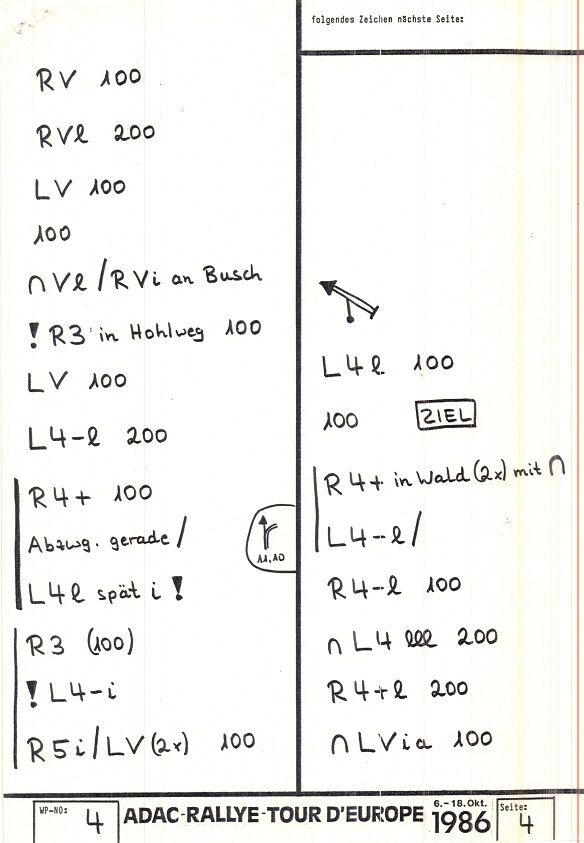 folgendes Zeichen nächste Seite:
RV 100
RVl 200
LV 100
100
∩ Vl / RVi an Busch
! R3 in Hohlweg 100
LV 100
L4-l 200
R4+ 100
Abzwg. gerade /
11.10
L4l spät i !
R3 (100)
! L4-i
R5i / LV (2x) 100
L4l 100
100 ZIEL
R4+ in Wald (2x) mit ∩
L4-l /
R4-l 100
∩ L4 lll 200
R4+l 200
∩ LVia 100
WP-NO: 4
ADAC-RALLYE-TOUR D'EUROPE
6.-18.Okt.
1986
Seite: 4